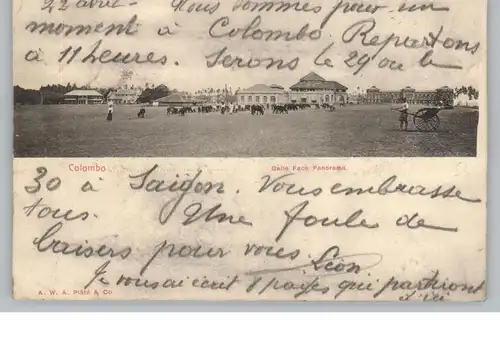 22 avril. Nous sommes pour un
moment à Colombo. Repartons
à 11 heures. Serons le 29 ou le
Colombo
Galle Face Panorama.
30 à Saïgon. Vous embrasse
tous. Une foule de
baisers pour vous Léon
Je vous ai écrit 8 pages qui partiront
d'ici
A. W. A. Plâté & Co